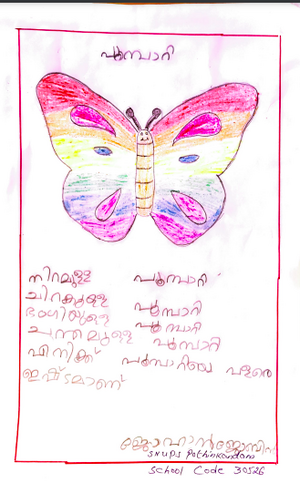 പൂമ്പാറ്റ
നിറമുള്ള പൂമ്പാറ്റ
ചിറകുള്ള പൂമ്പാറ്റ
ഭംഗിയുള്ള പൂമ്പാറ്റ
ചന്തമുള്ള പൂമ്പാറ്റ
എനിക്ക് പൂമ്പാറ്റയെ വളരെ
ഇഷ്ടമാണ്
ജോഹാൻജോബിൻ
SNUPS Pathinkandam
School Code 30526